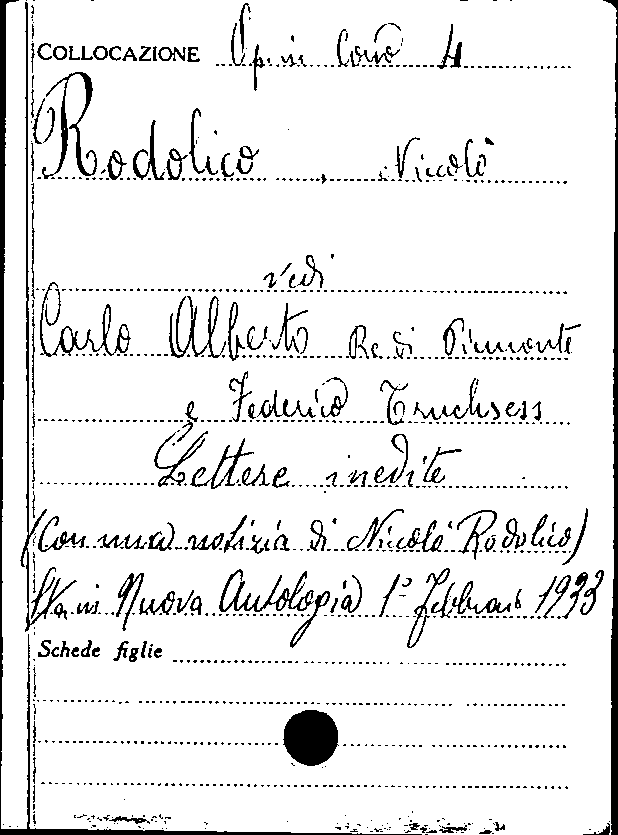 COLLOCAZIONE Op. in Cons 4
Rodolico, Niccolò
vedi
Carlo Alberto Re di Piemonte
e Federico Truchsess
Lettere inedite
(Con una notizia di Niccolò Rodolico)
Sta in Nuova Antologia 1° Febbraio 1933
Schede figlie